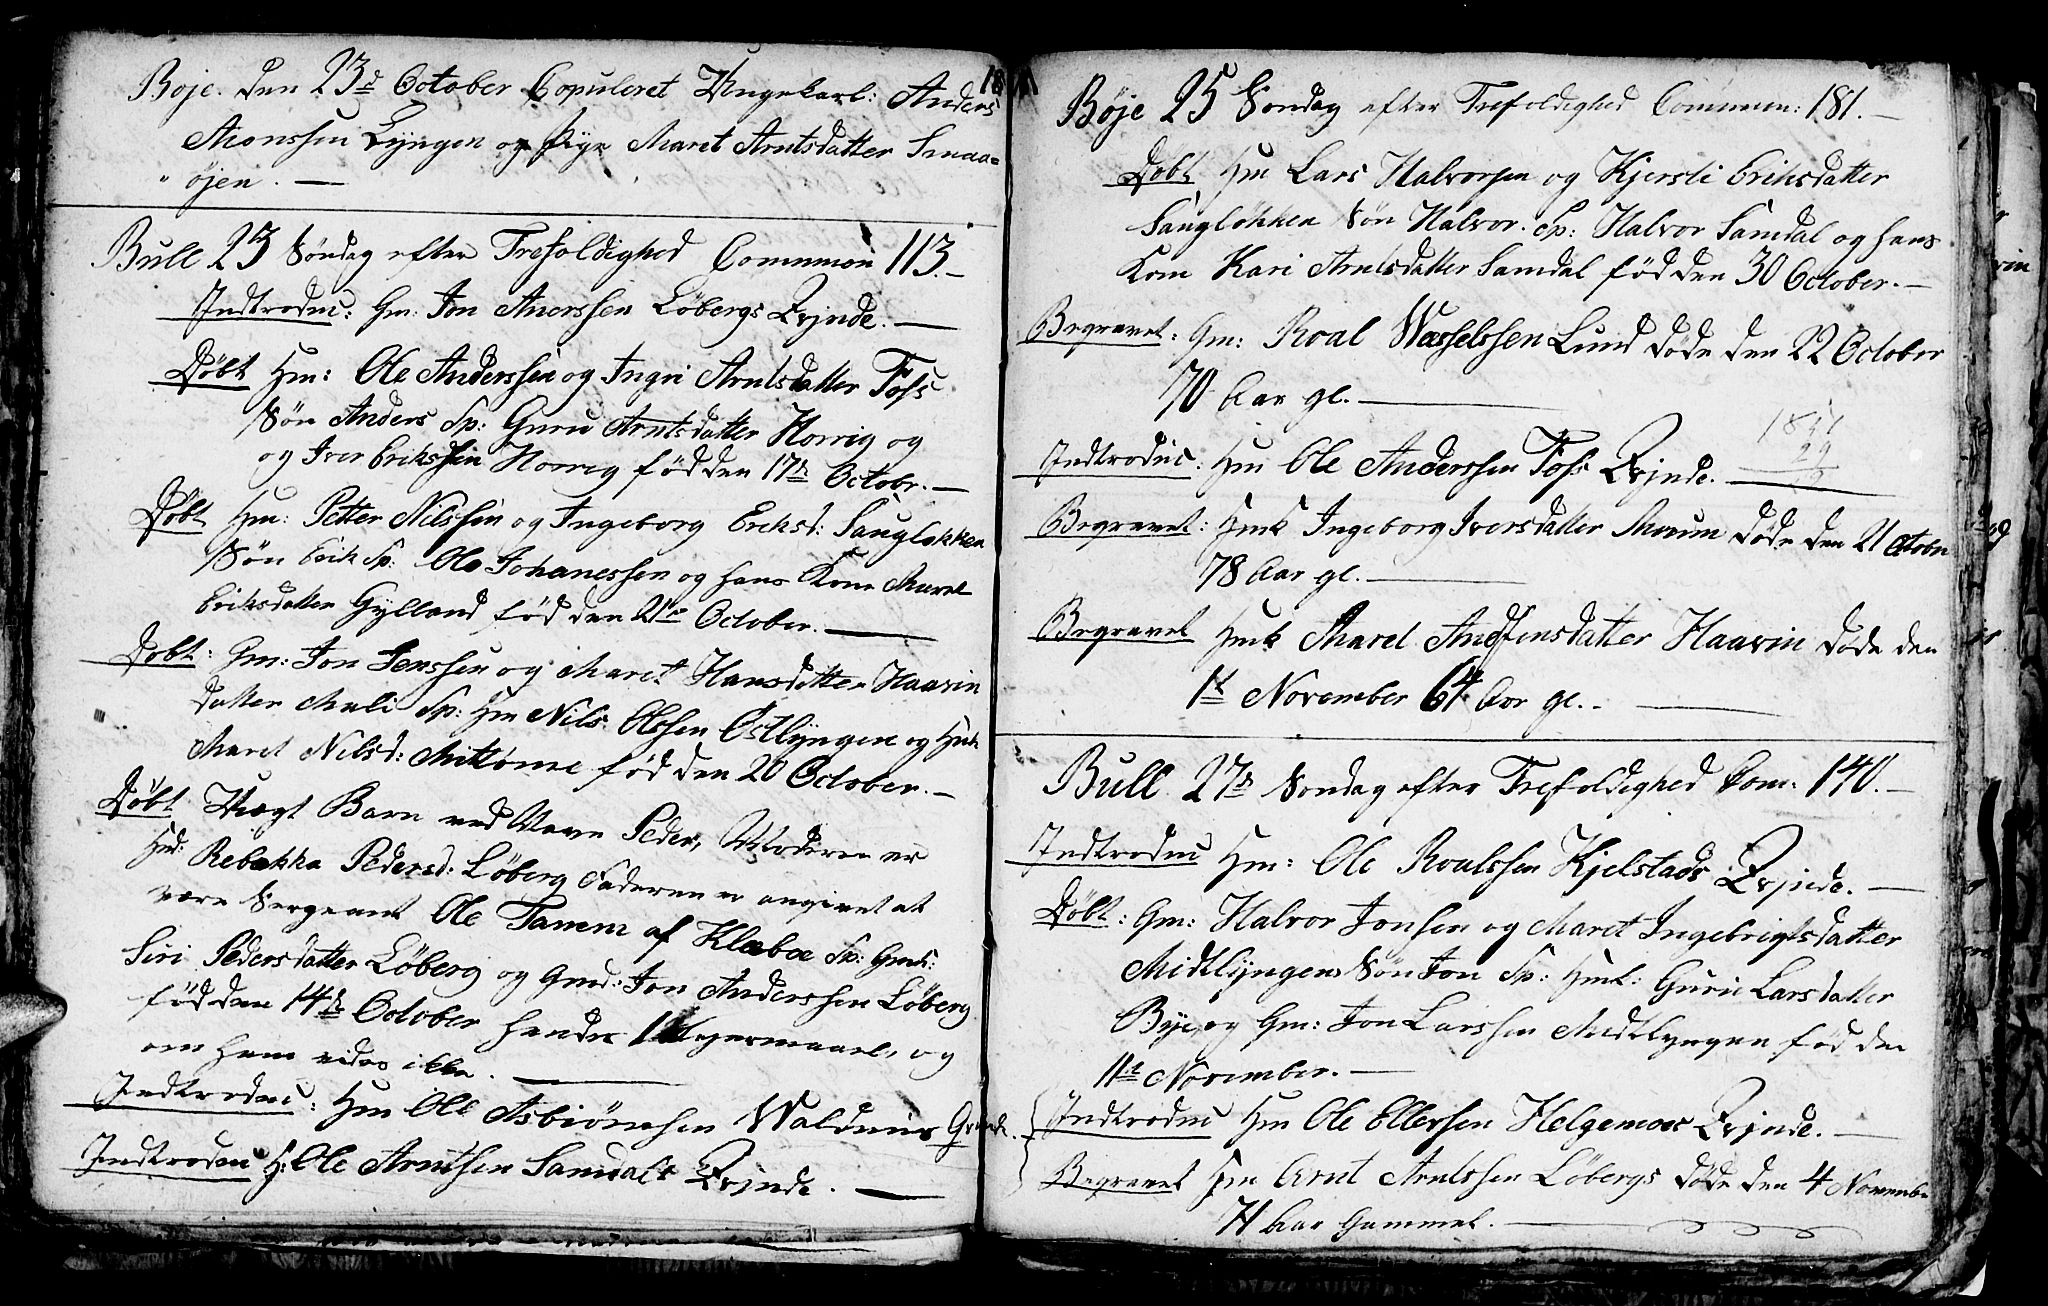 Böje. den 23d October Copuleret Ungekarl: Anders
Monssen Lyngen og Pige Maret Arntsdatter Smaa=
" öjen. —
Bull 23 Söndag efter Trefoldighed Commun 113. —
Indtroduc: Gm: Jon Anerssen Löbergs Qvinde. —
Döbt Hm: Ole Anderssen og Ingri Arntsdatter Foss
Sön Anders Sp: Guru Arntsdatter Horrig og
og Iver Erikssen Horrig föd den 17de Octobr. —
Döbt Hm: Petter Nilssen og Ingeborg Eriksd: Saugløkken
Sön Erik Sp: Ole Johanessen og hans Kone Maret
Eriksdatter Gylland föd den 21de October. —
Döbt: Gm: Jon Jenssen og Maret Hansdatter Haavin
datter Mali Sp: Hm Nils Olssen Östlyngen og Hmk
Maret Nilsd: föd den 20 October. —
Döbt Uægt Barn ved Navn Peder, Moderen er
Hmd: Rebekka Pedersd: Löberg Faderen er angivet at
være Sergeant Ole Tamm af Klæboe Sp: Gmk:
Siri Pedersdatter Löberg og Gmd: Jon Anderssen Löberg
föd den 14de October hendes 1 Lejermaal, og
om ham vides ikke. —
Indtroduc: Hm Ole Asbiörnsen Waldnus
Indtroduc H: Ole Arntsen Samdals Qvinde. —
Böje 25 Söndag efter Trefoldighed Commun: 181. —
Döbt Hm Lars Halvorsen og Kjersti Eriksdatter
Saugløkken Sön Halvor. Sp: Halvor Samdal og hans
Kone Kari Arntsdatter Samdal föd den 30 October. —
Begravet: Gm: Roal Wæsselssen Lund döde den 22 October
70 Aar gl. —
Indtroduc: Hm Ole Anderssen Foss Qvinde. —
Begravet: Hmk Ingeborg Iversdatter Moum döde den 21 Octobr
78 Aar gl. —
Begravet Hmk Maret Haavin döde den
1st November 64 Aar gl. —
Bull 27de Söndag efter Trefoldighed Com: 140. —
Indtroduc Hm: Ole Roalssen Kjelstads Qvinde. —
Döbt: Gm: Halvor Jonsen og Maret Ingebrigtsdatter
Midtlyngens Sön Jon Sp: Hmk: Guru Larsdatter
Bye, og Gm: Jon Larssen Midtlyngen föd den
11te November. —
Indtroduc Hm Ole Ellefsen Helgemoes Qvinde. —
Begravet Hm Arnt Arntssen Löbergs döde den 4 Novembr
71 Aar Gammel. —